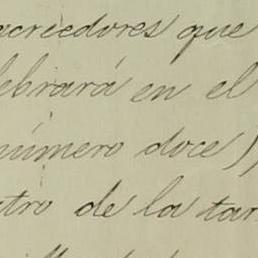 acreedores que
lebrará en el
número doce)
tro de la tar